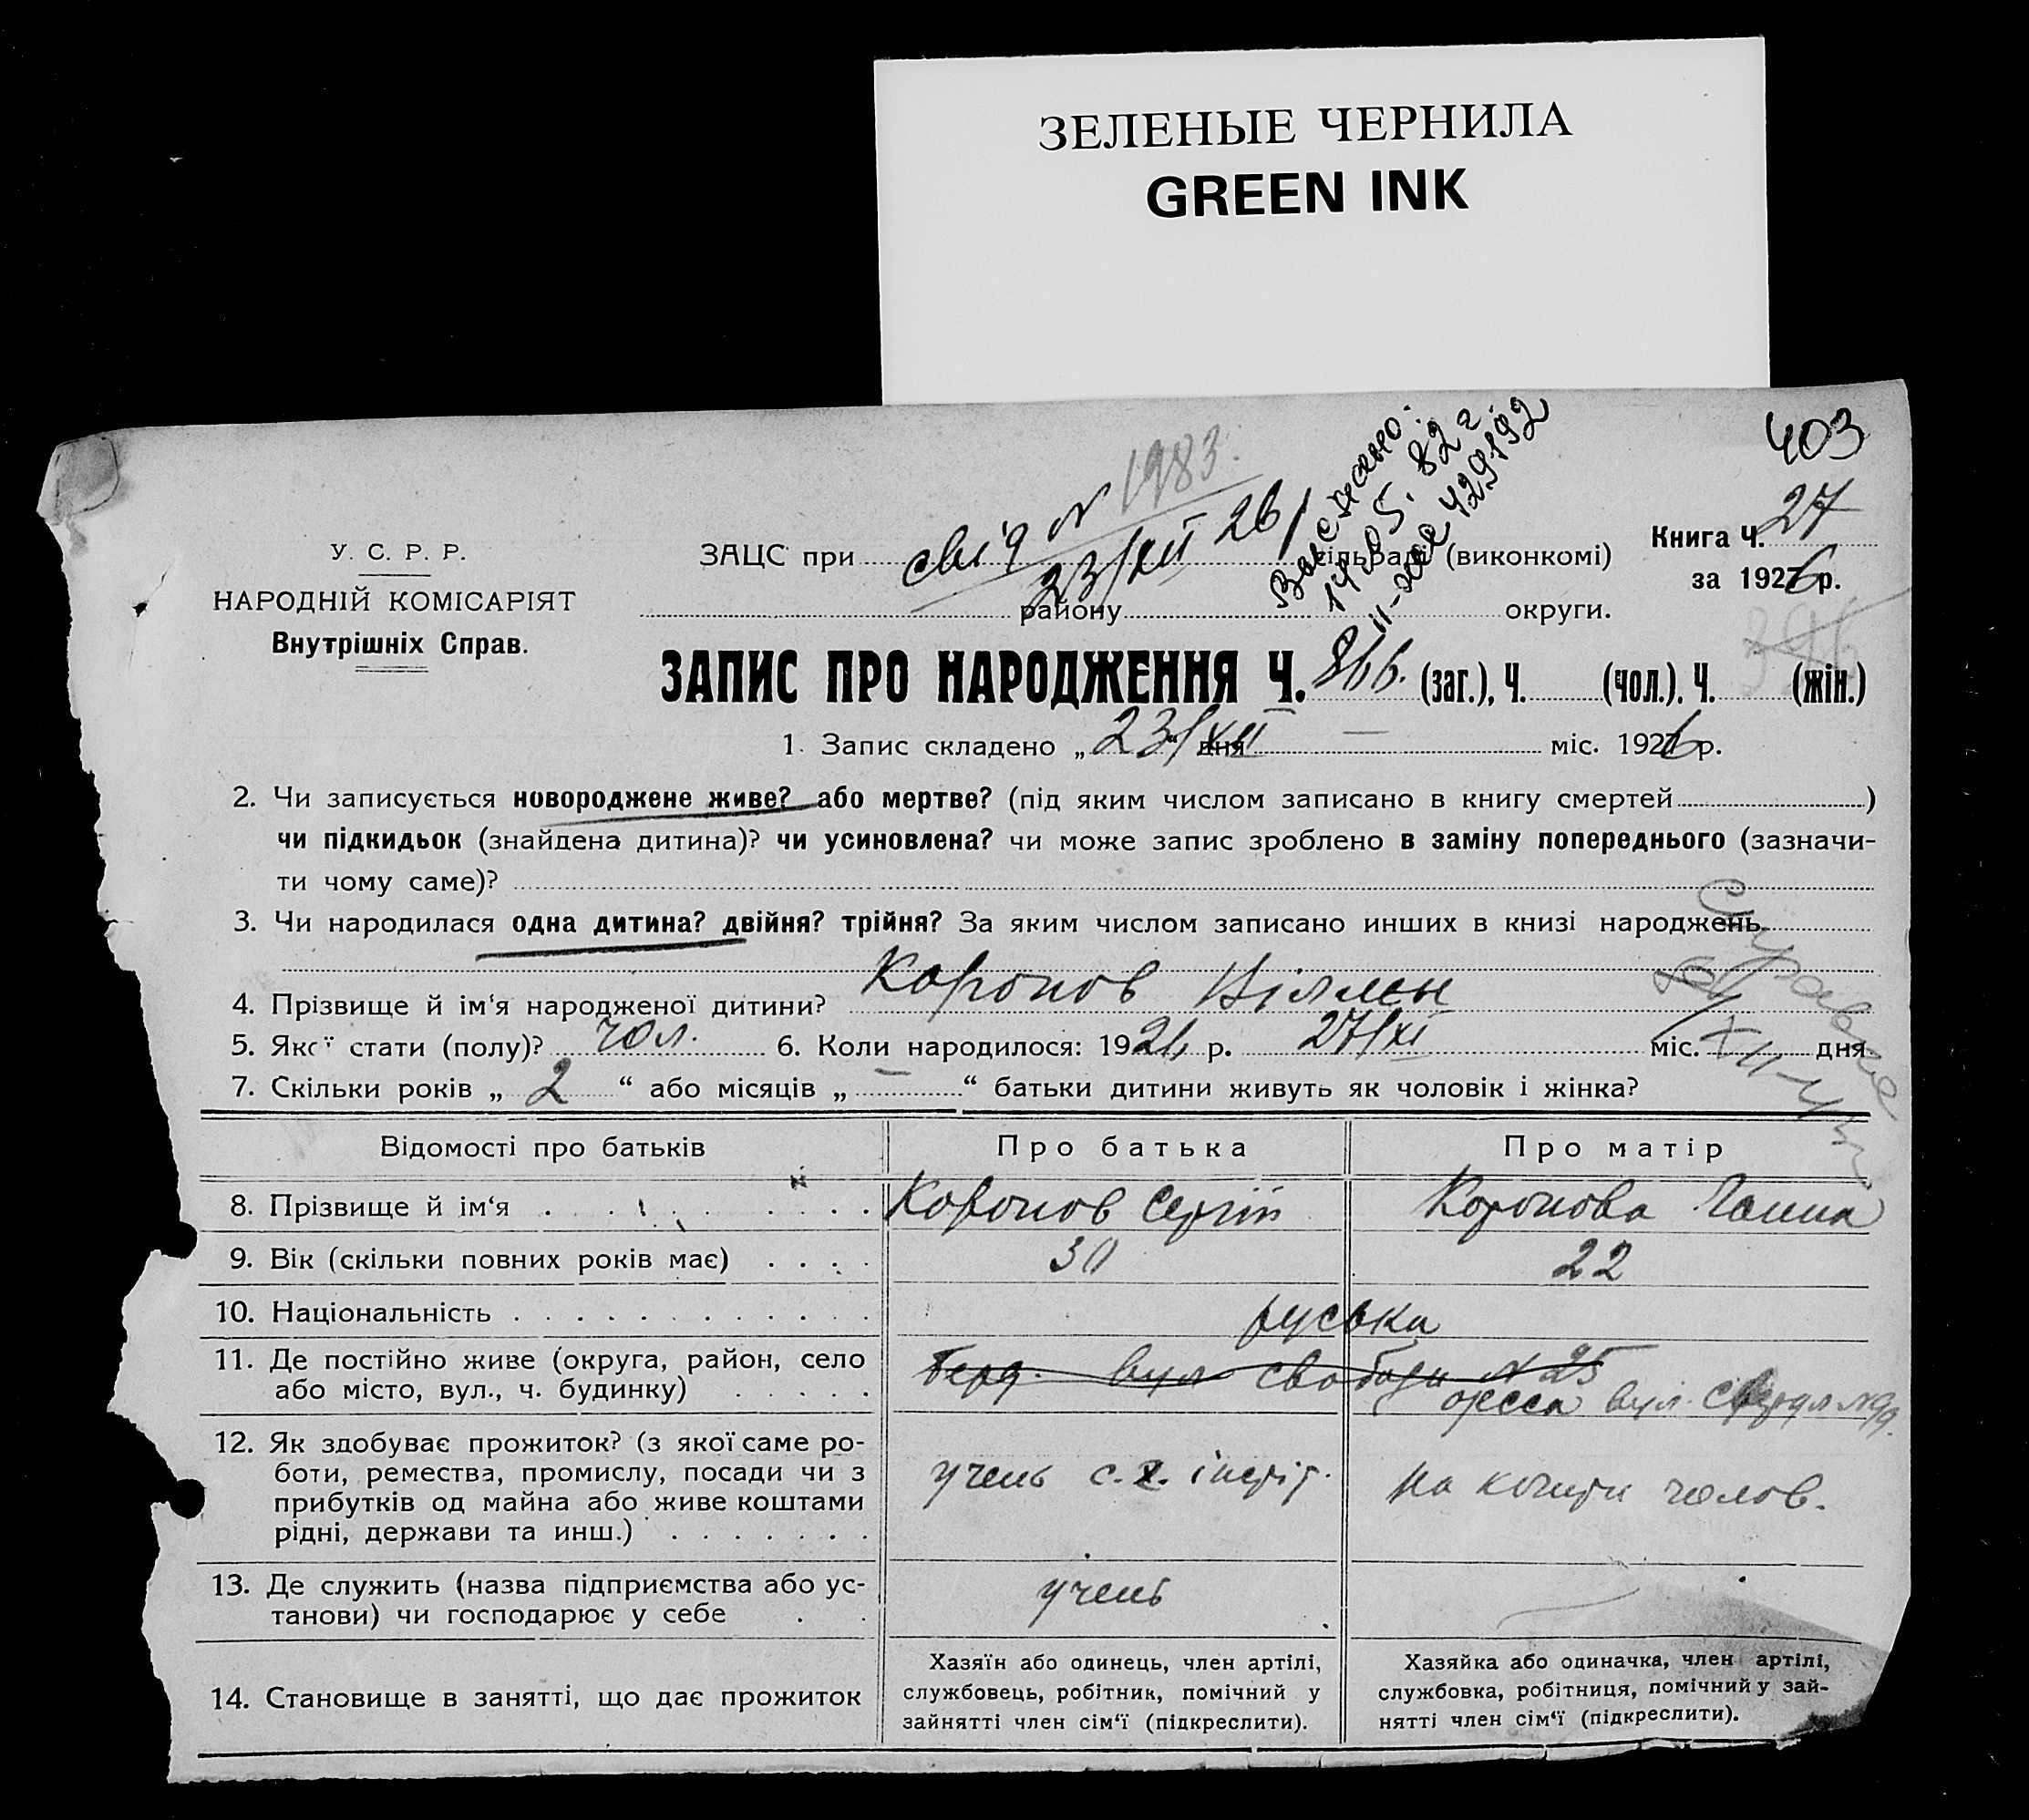 ЗЕЛЕНЫЕ ЧЕРНИЛА
GREEN INK
403
1983.
свід N
23/XII 26
14.05.82 г.
429192
У. С. Р. Р.
НАРОДНІЙ КОМІСАРІЯТ
Внутрішніх Справ.
ЗАЦС при сільраді (виконкомі)
району округи.
Книга Ч. 27
за 1926 р.
ЗАПИС ПРО НАРОДЖЕННЯ Ч. 866. (заг.), Ч. (чол.), Ч. (жін.)
1. Запис складено „ 23/XII “ дня — міс. 1926 р.
2. Чи записується новороджене живе? або мертве? (під яким числом записано в книгу смертей )
чи підкидьок (знайдена дитина)? чи усиновлена? чи може запис зроблено в заміну попереднього (зазначи-
ти чому саме)?
3. Чи народилася одна дитина? двійня? трійня? За яким числом записано инших в книзі народжень
4. Прізвище й ім‘я народженої дитини? Коронов Віллен
5. Якої статі (полу)? чол. 6. Коли народилося: 1926 р. 27/XI міс. дня
7. Скільки років „ 2 “ або місяців „ — “ батьки дитини живуть як чоловік і жінка?
Відомості про батьків Про батька Про матір
8. Прізвище й ім‘я Коронов Сергій Коронова Ганна
9. Вік (скільки повних років має) 30 22
10. Національність руська
11. Де постійно живе (округа, район, село
або місто, вул., ч. будинку)
Берд. вул Свободи N 25
Одесса вул.
12. Як здобуває прожиток? (з якої саме ро-
боти, ремества, промислу, посади чи з
прибутків од майна або живе коштами
рідні, держави та инш.)
учень с.х. інстіт.
На кошти чолов.
13. Де служить (назва підприємства або ус-
танови) чи господарює у себе
учень
14. Становище в занятті, що дає прожиток
Хазяїн або одинець, член артілі,
службовець, робітник, помічний у
зайнятті член сім‘ї (підкреслити).
Хазяйка або одиначка, член артілі,
службовка, робітниця, помічний у зай-
нятті член сім‘ї (підкреслити).